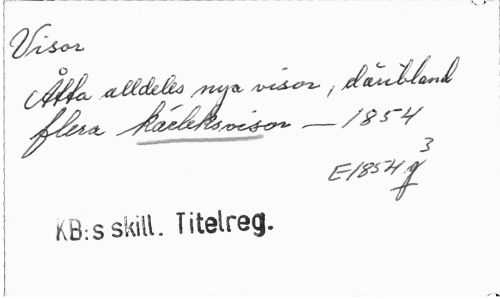 Visor
Åtta alldeles nya visor, däribland
flera kärleksvisor — 1854
E1854g
3
KB:s skill. Titelreg.